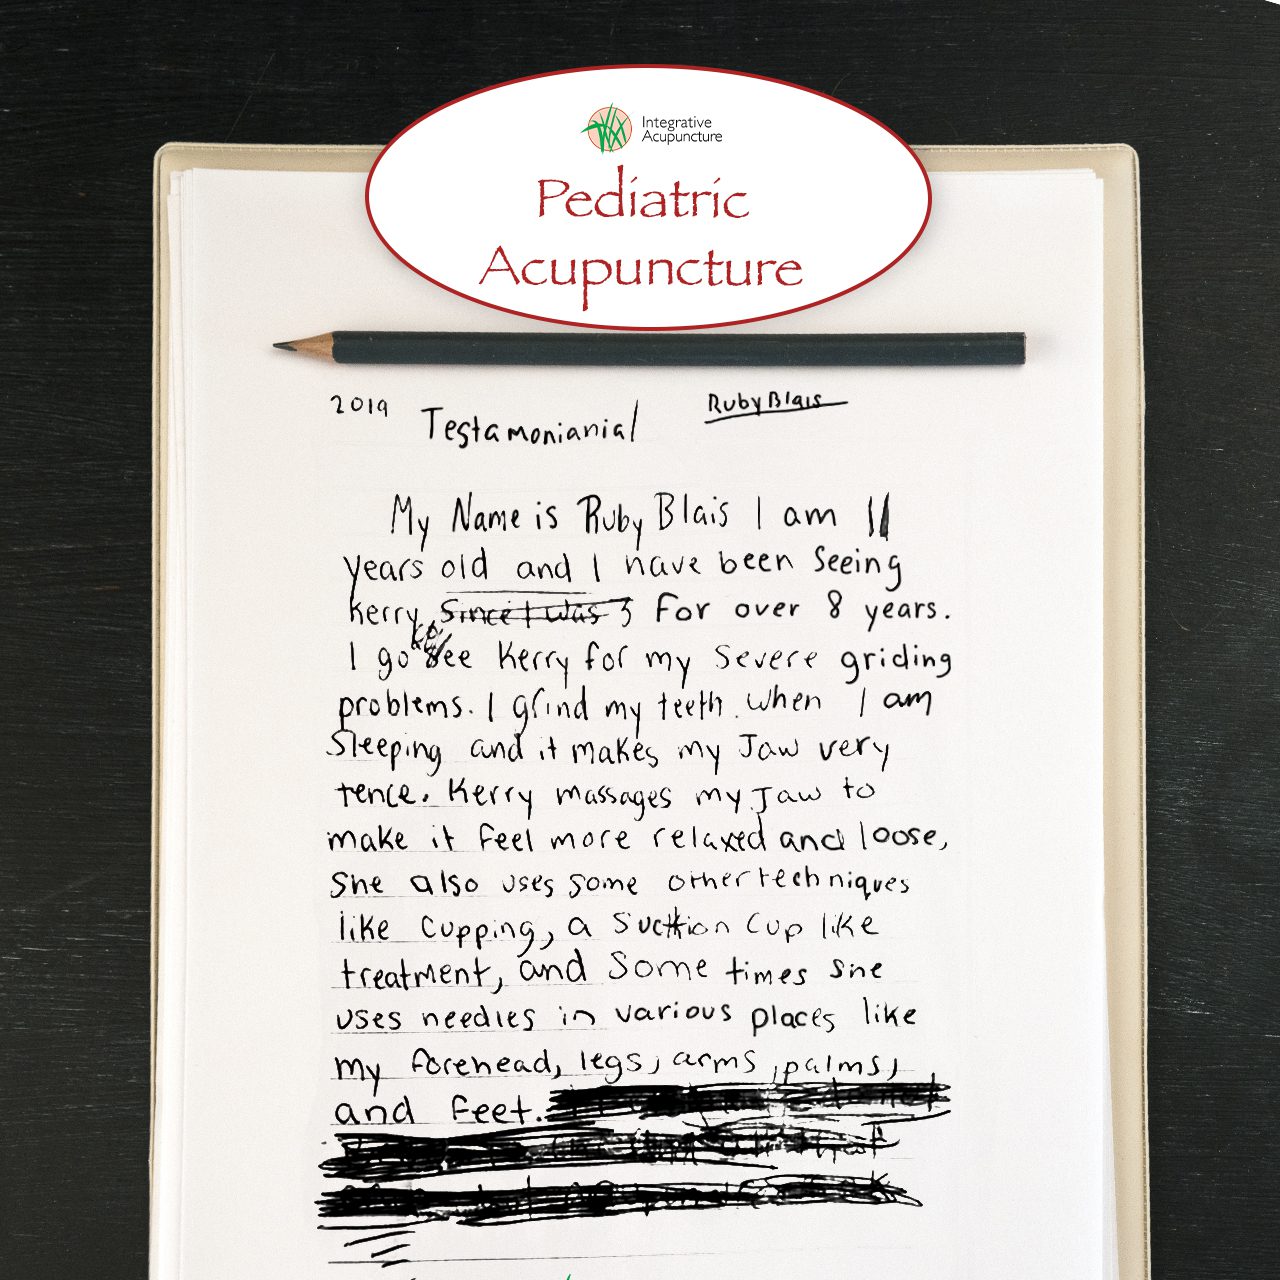 Integrative
Acupuncture
Pediatric
Acupuncture
2019
Ruby Blais
Testamonianial
My Name is Ruby Blais I am 11
years old and I have been Seeing
Kerry, Since I was 3 For over 8 years.
I go to see Kerry for my severe griding
problems. I grind my teeth when I am
Sleeping and it makes my Jaw very
tence. Kerry massages my Jaw to
make it feel more relaxed and loose,
She also uses some other techniques
like Cupping, a Suction Cup like
treatment, and Some times she
uses needles in various places like
my forehead, legs, arms, palms,
and feet.